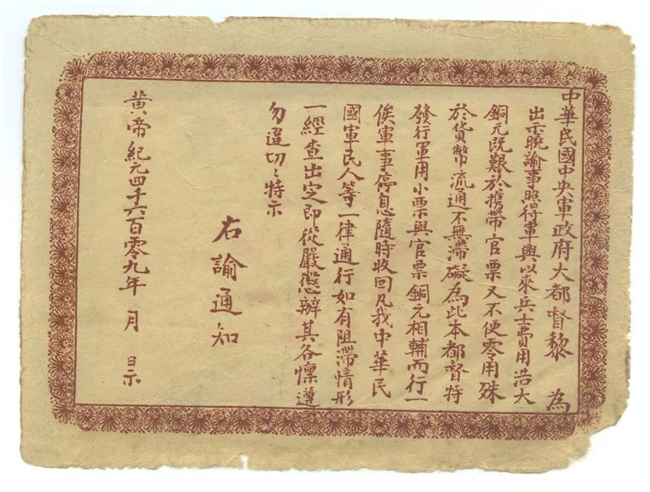 中華民國中央軍政府大都督黎　為
出示曉諭事照得軍興以來兵士費用浩大
銅元既艱於携帶官票又不便零用殊
於貨幣流通不無滯礙為此本都督特
發行軍用小票與官票銅元相輔而行一
俟軍事停息隨時收回凡我中華民
國軍民人等一律通行如有阻滯情形
一經查出定即從嚴懲辦其各懍遵
勿違切〻特示
右諭通知
黄帝紀元四千六百零九年　月　日示